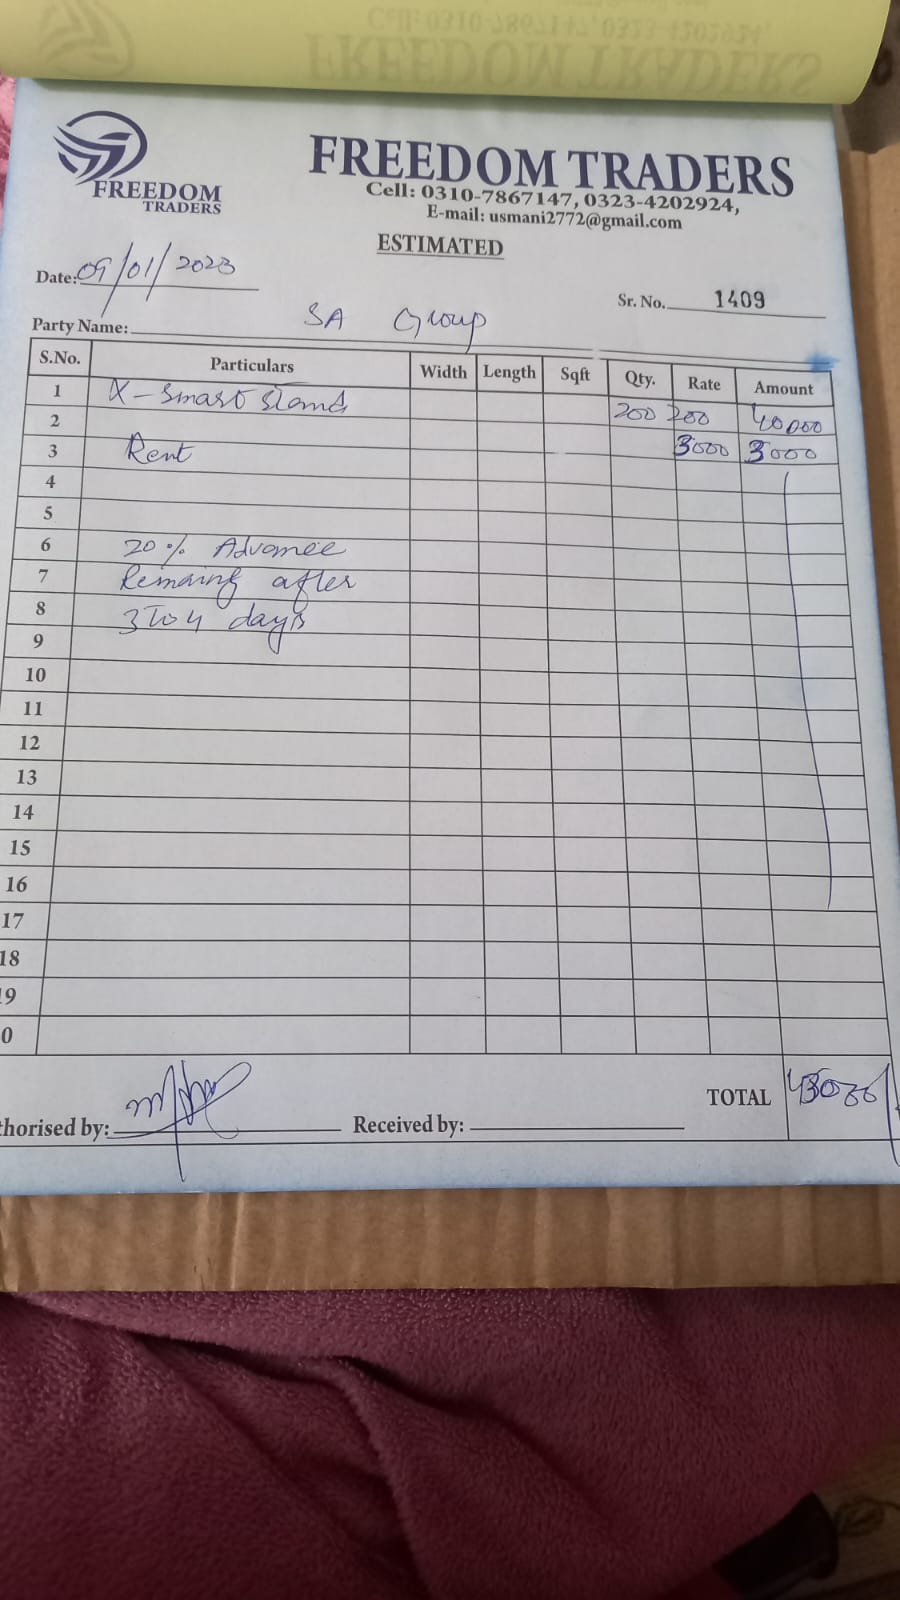 Cell: 0310-7867147, 0323-4202924,
FREEDOM TRADERS
FREEDOM
TRADERS
FREEDOM TRADERS
Cell: 0310-7867147, 0323-4202924,
E-mail: usmani2772@gmail.com
ESTIMATED
Date: 09/01/2023
Sr. No. 1409
Party Name: SA Group
S.No. Particulars Width Length Sqft Qty. Rate Amount
1 X-Smart Stand 200 200 40000
2
3 Rent 3000 3000
4
5
6 20% Advance
7 Remaing after
8 3 to 4 days
9
10
11
12
13
14
15
16
17
18
19
0
TOTAL 43000/
thorised by: Received by: